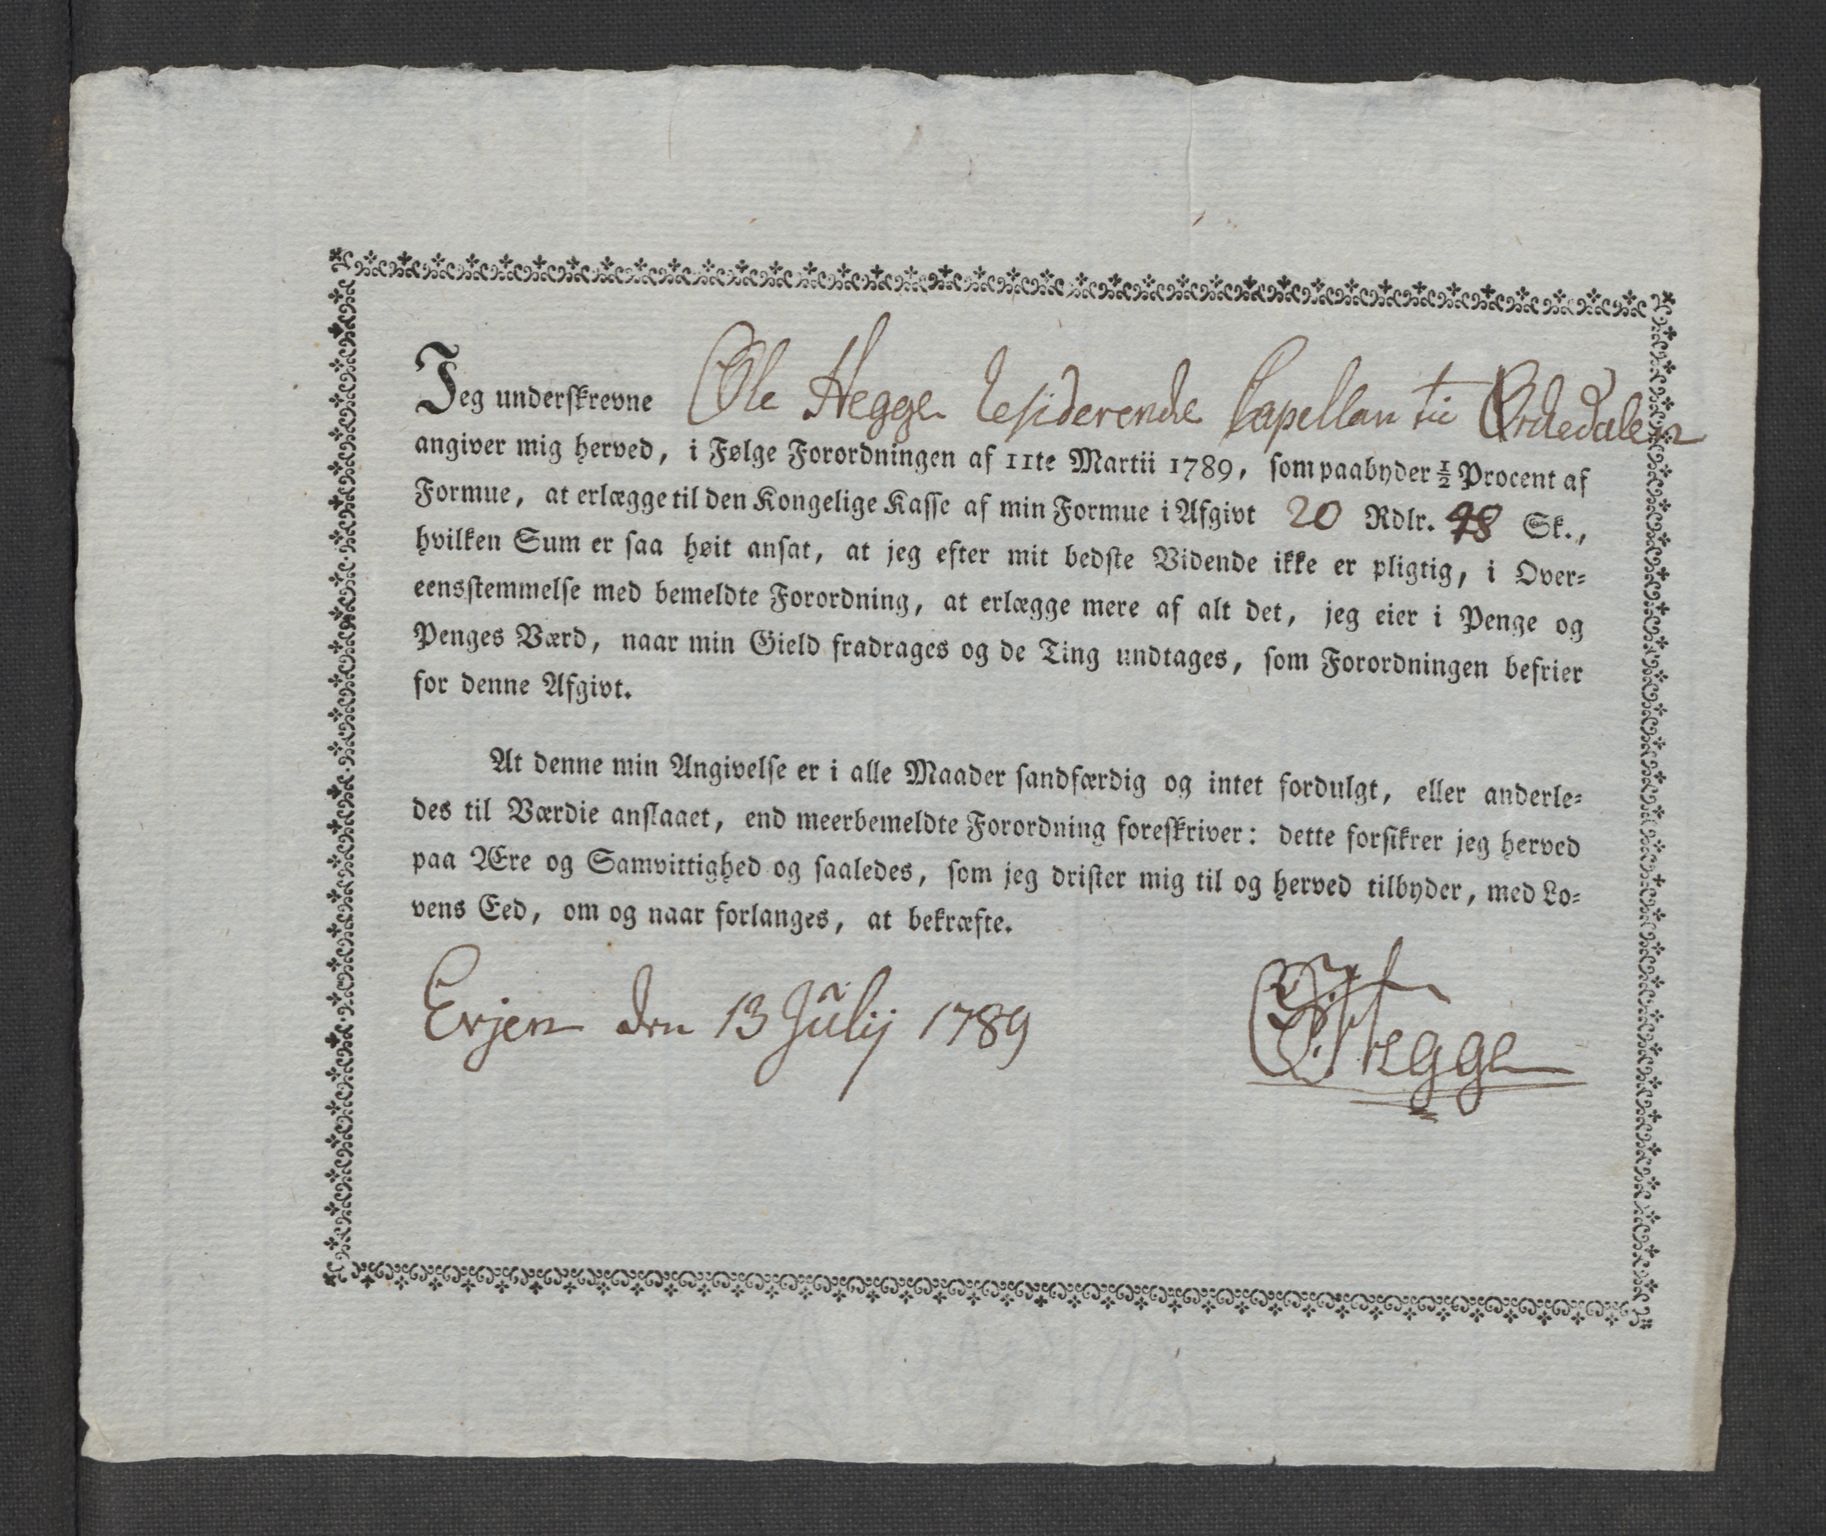 Jeg underskrevne Ole Hegge residerende Capellan til Ørkedalen
angiver mig herved, i Følge Forordningen af 11te Martii 1789, som paabyder ½ Procent af
Formue, at erlægge til den Kongelige Kasse af min Formue i Afgivt 20 Rdlr. 48 Sk.,
hvilken Sum er saa høit ansat, at jeg efter mit bedste Vidende ikke er pligtig, i Over-
eensstemmelse med bemeldte Forordning, at erlægge mere af alt det, jeg eier i Penge og
Penges Værd, naar min Gield fradrages og de Ting undtages, som Forordningen befrier
for denne Afgivt.
At denne min Angivelse er i alle Maader sandfærdig og intet fordulgt, eller anderle-
des til Værdie anslaaet, end meerbemeldte Forordning foreskriver: dette forsikrer jeg herved
paa Ære og Samvittighed og saaledes, som jeg drister mig til og herved tilbyder, med Lo-
vens Eed, om og naar forlanges, at bekræfte.
Evjen den 13 Julij 1789
O Hegge